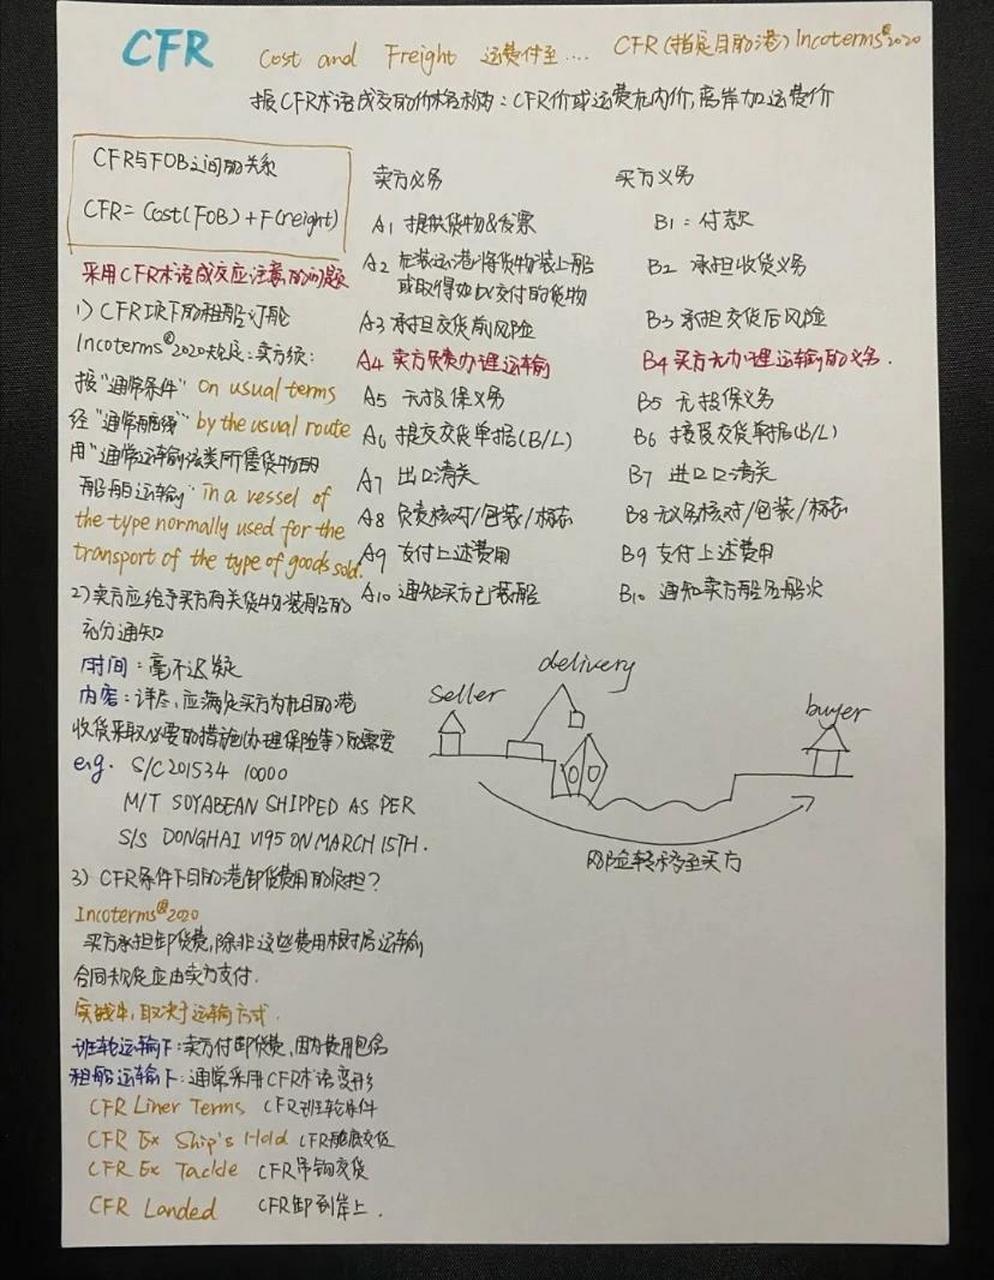 CFR Cost and Freight 运费付至.... CFR(指定目的港)Incoterms®2020
按CFR术语成交的价格称为：CFR价或运费在内价,离岸加运费价
CFR与FOB之间的关系
CFR=Cost(FOB)+F(reight)
采用CFR术语成交应注意的问题
1) CFR项下的租船订舱
Incoterms®2020规定：卖方须：
按"通常条件" on usual terms
经"通常航线" by the usual route
用"通常运输该类所售货物的
船舶运输" in a vessel of
the type normally used for the
transport of the type of goods sold.
2)卖方应给予买方有关货物装船的
充分通知
时间：毫不迟疑
内容：详尽,应满足买方为在目的港
收货采取必要的措施(办理保险等)的需要
e.g. S/C201534 10000
M/T SOYABEAN SHIPPED AS PER
S/S DONGHAI V195 ON MARCH 15TH.
3) CFR条件下目的港卸货费用的负担?
Incoterms®2020
买方承担卸货费,除非这些费用根据运输
合同规定应由卖方支付.
实践中,取决于运输方式.
班轮运输下:卖方付卸货费,因为费用包含
租船运输下:通常采用CFR术语变形
CFR Liner Terms CFR班轮条件
CFR Ex Ship's Hold CFR舱底交货
CFR Ex Tackle CFR吊钩交货
CFR Landed CFR卸到岸上.
卖方义务
A1 提供货物&发票
A2 在装运港将货物装上船
或取得如此交付的货物
A3 承担交货前风险
A4 卖方负责办理运输
A5 无投保义务
A6 提交交货单据(B/L)
A7 出口清关
A8 负责核对/包装/标志
A9 支付上述费用
A10 通知买方已装船
买方义务
B1：付款
B2 承担收货义务
B3 承担交货后风险
B4 买方无办理运输的义务.
B5 无投保义务
B6 接受交货单据(B/L)
B7 进口清关
B8 无义务核对/包装/标志
B9 支付上述费用
B10 通知卖方船名船次
delivery
seller
buyer
风险转移至买方